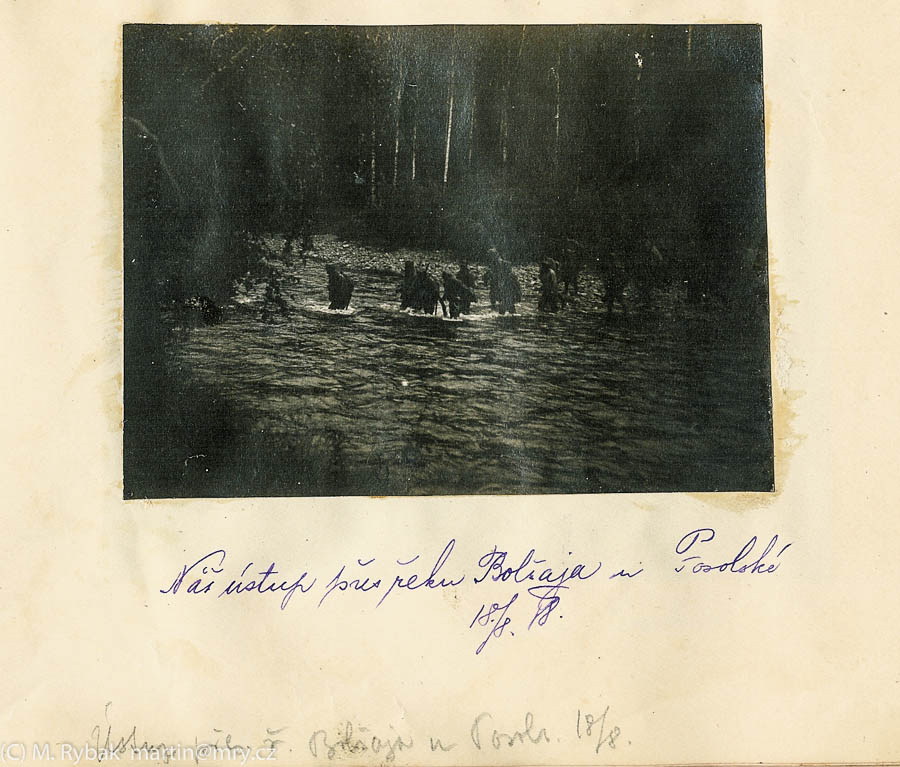 Náš ústup přes řeku Bolšaja u Posolské
18/8. 18.
Ústup přes ř. Bolšaja u Posols. 18/8.
(C) M. Rybak martin@mry.cz